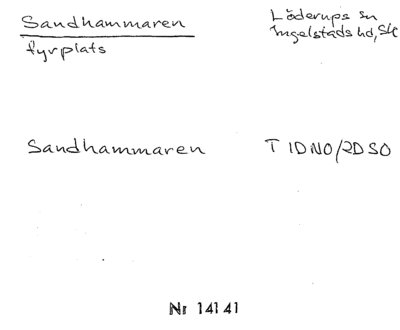 Sandhammaren
fyrplats
Löderups sn
Ingelstads hd, Sk
Sandhammaren
T 1DNO/2DSO
Nr 14141